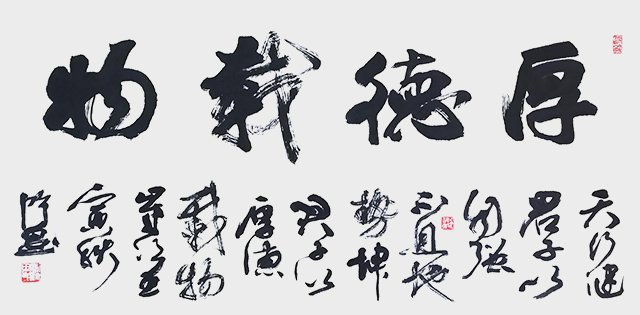 厚德載物
天行健
君子以
自強
不息地
勢坤
君子以
厚德
載物
寅秋